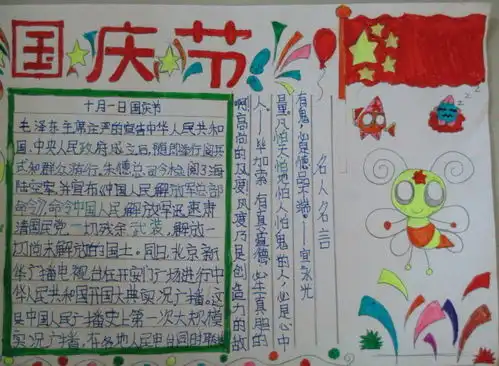 国庆节
十月一日国庆节
毛泽东主席庄严的宣告中华人民共和
国、中央人民政府成立后,随即举行阅兵
式和群众游行。朱德总司令检阅3海
陆空军,并宣布《中国人民解放军总部
命令》,命令中国人民解放军迅速肃
清国民党一切残余武装,解放一
切尚未解放的国土。同日,北京新
华广播电视台在开安门广场进行中
华人民共和国开国大典实况广播。这
是中国人民广播史上第一次大规模
实况广播,在各地人民电台同时联播
名人名言
有鬼,必是德品下端。——宣永光
量。凡怕天怕地怕人怕鬼的人,必是心中
人。——丝加索 有真道德,必生真胆的
啊,高尚的风度!风度乃是创造力的敌